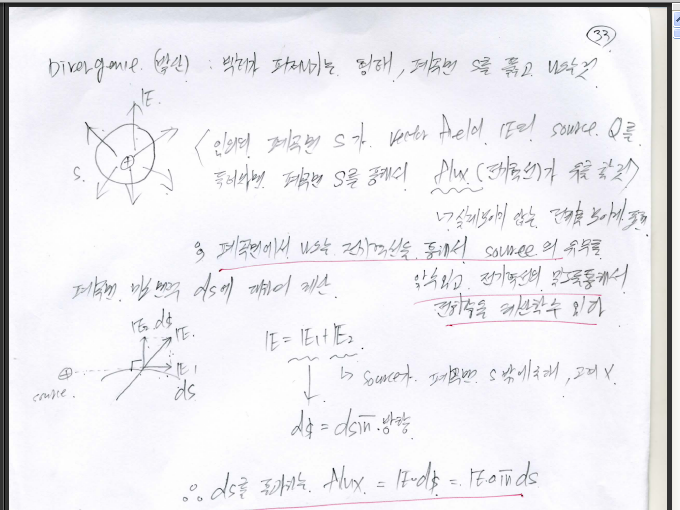 33
Divergence (발산) : 벡터가 퍼져나가는 형태, 폐곡면 S를 뚫고 나오는 것
IE
S.
< 임의의 폐곡면 S가 vector field인 IE의 source Q를
폐곡면 S를 통해서 flux (전기력선)가 나올 것 >
↳ 실제 보이지 않는 전기력
※ 폐곡면에서 나오는 전기력선을 통해서 source의 유무를
알수있고, 전기력선의 밀도를 통해서
폐곡면 미소면적 ds에 대하여 계산
전기장을 계산할 수 있다
IE₂ d$ IE
IE = IE₁ + IE₂
IE₁
ds
source
↳ source가 폐곡면 S 밖에 존재, 고려 X.
d$ = ds n̄ 방향
∴ ds를 통과하는 flux = IE·d$ = IE·n̄ ds